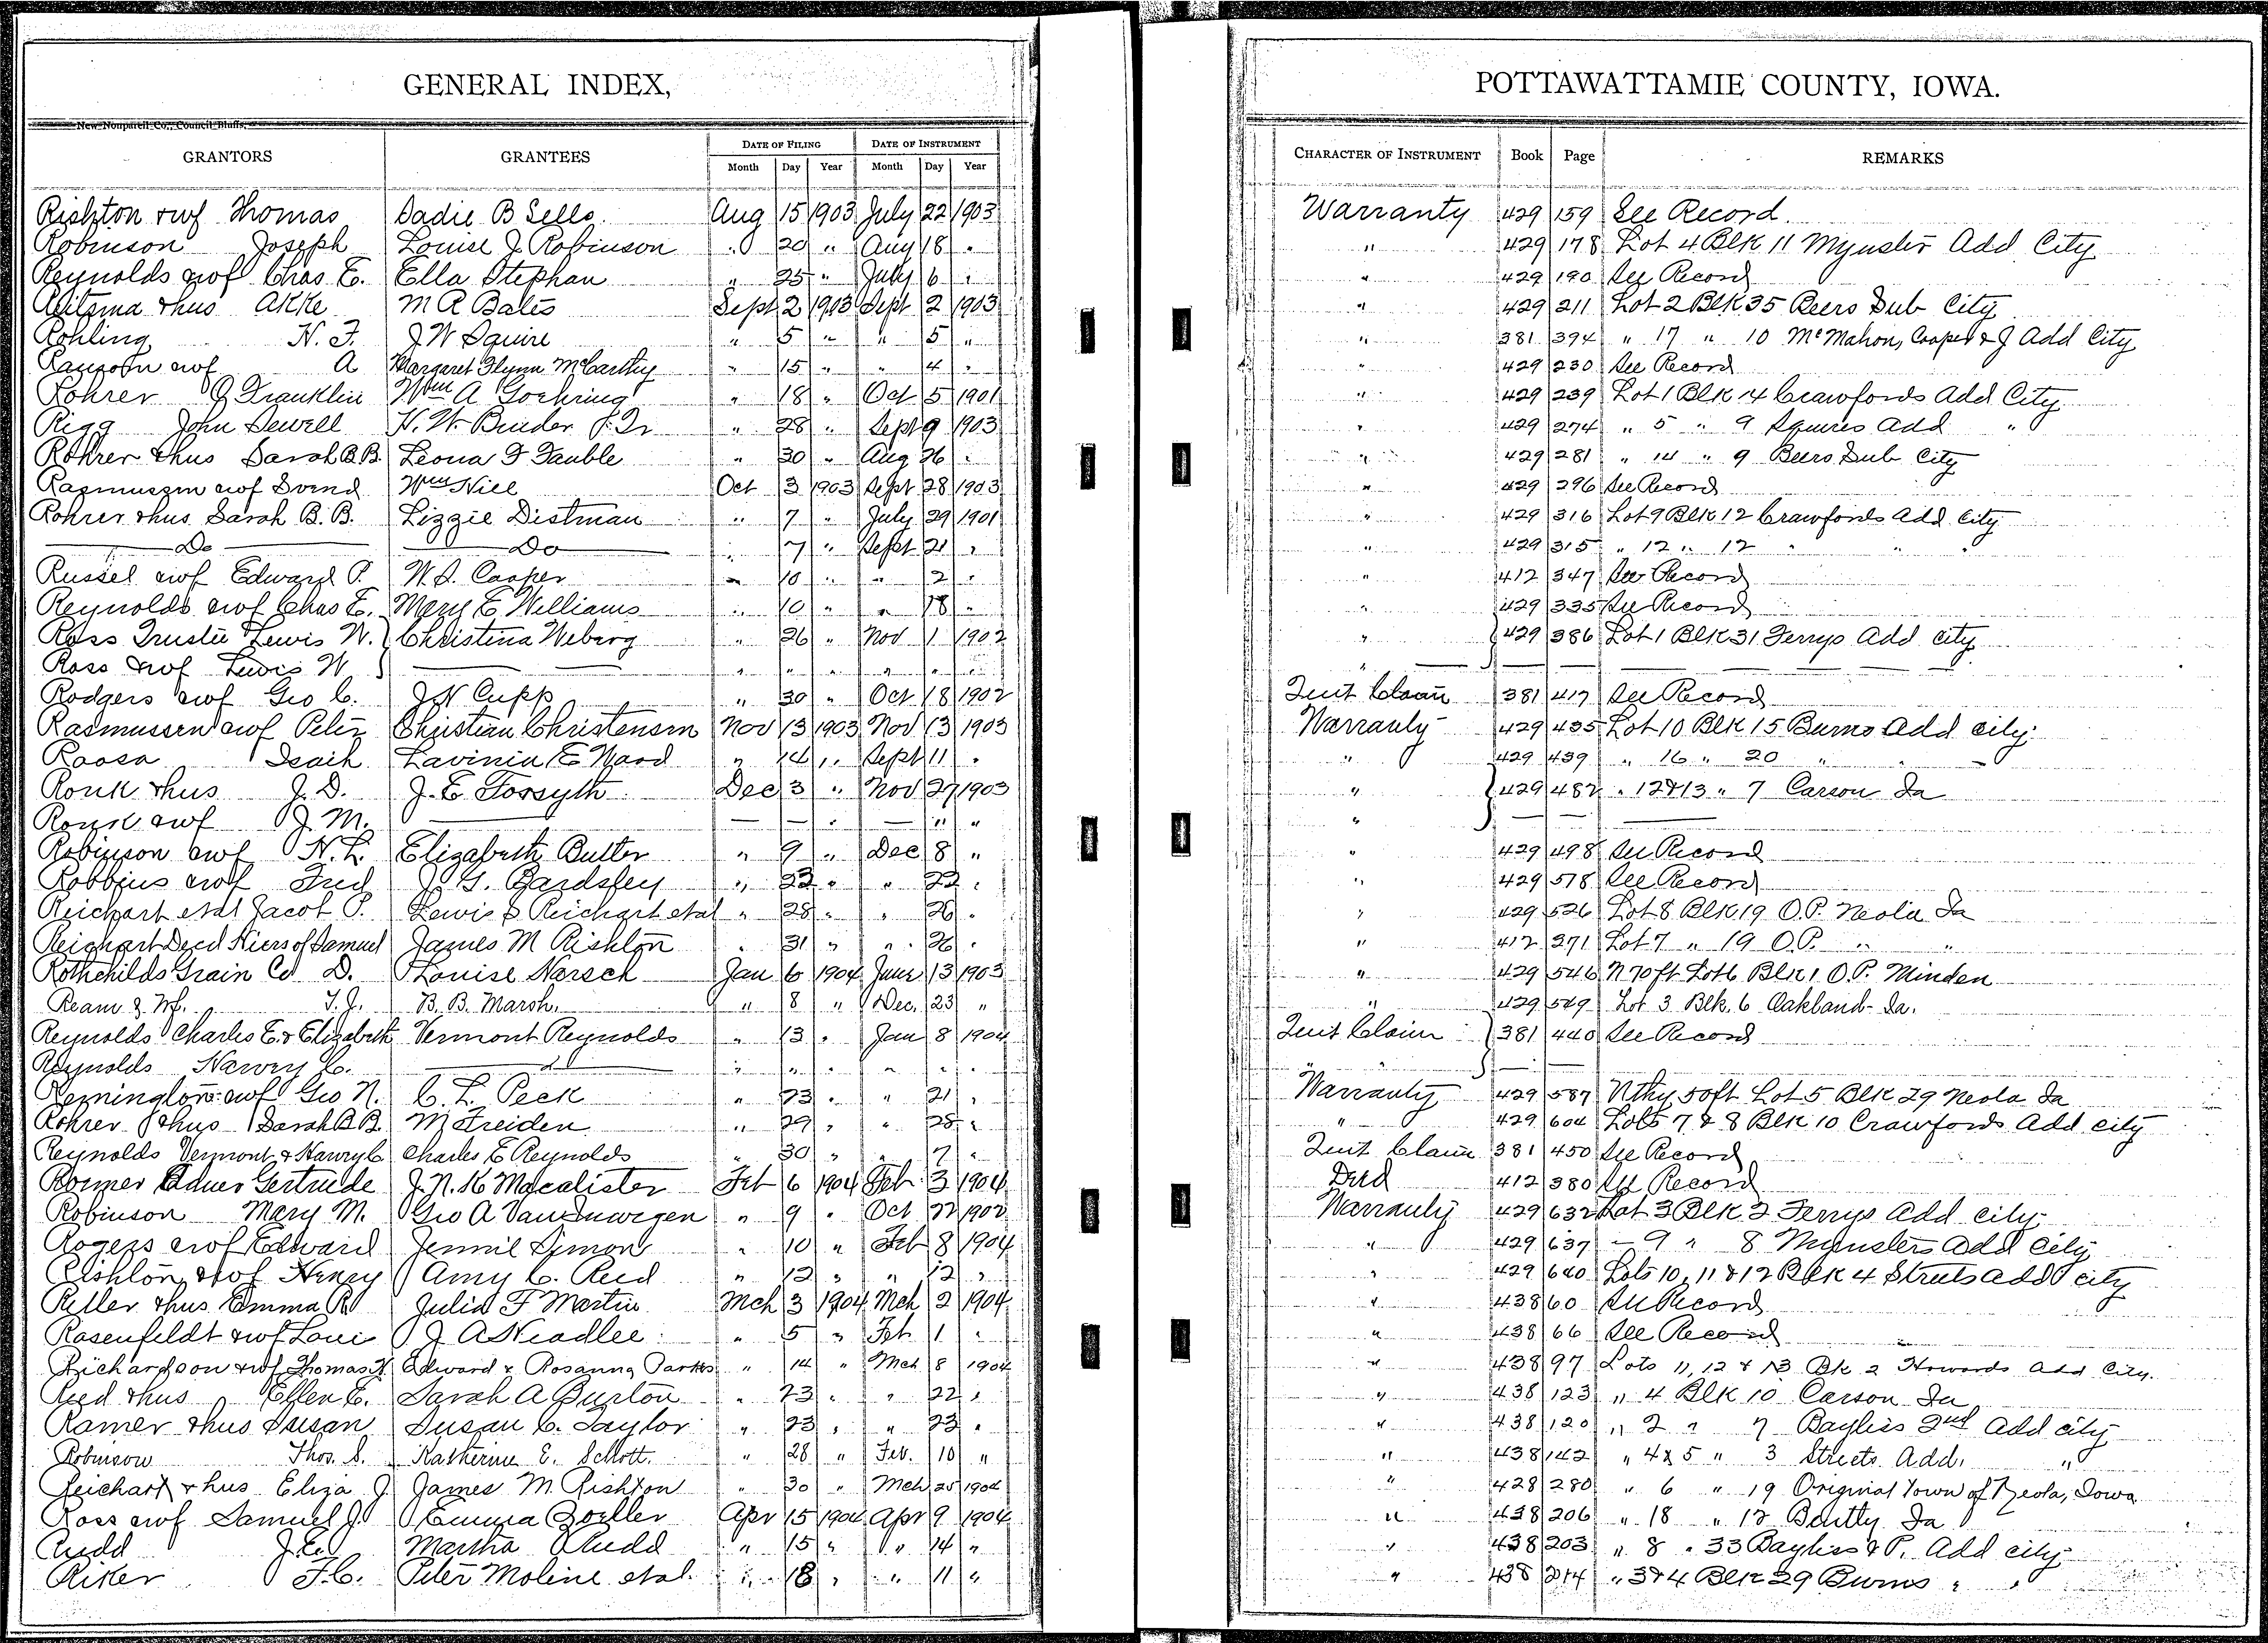 GENERAL INDEX,
POTTAWATTAMIE COUNTY, IOWA.
New Nonpareil Co., Council Bluffs.
GRANTORS GRANTEES DATE OF FILING DATE OF INSTRUMENT CHARACTER OF INSTRUMENT Book Page REMARKS
Month Day Year Month Day Year
Rishton & wf Thomas Sadie B Sells Aug 15 1903 July 22 1903 Warranty 429 159 See Record
Robinson Joseph Louise J. Robinson " 20 " Aug 18 " " 429 178 Lot 4 Blk 11 Mynster Add City
Reynolds & wf Chas E. Ella Stephan " 25 " July 6 " " 429 190 See Record
Reitsma & hus Akke M R Bales Sept 2 1903 Sept 2 1903 " 429 211 Lot 2 Blk 35 Beers Sub City
Rohling N. F. J W Squire " 5 " " 5 " " 381 394 " 17 " 10 McMahon, Cooper & J Add City
Ransom & wf A Margaret Flynn McCarthy " 15 " " 4 " " 429 230 See Record
Rohrer J Franklin Wm A Goehring " 18 " Oct 5 1901 " 429 239 Lot 1 Blk 14 Crawfords Add City
Rigg John Sewell H. W. Binder Jr " 28 " Sept 9 1903 " 429 274 " 5 " 9 Squires Add "
Rohrer & hus Sarah B B. Leona F Tauble " 30 " Aug 26 " " 429 281 " 14 " 9 Beers Sub City
Rasmussen & wf Svend Wm Hill Oct 3 1903 Sept 28 1903 " 429 296 See Record
Rohrer & hus Sarah B. B. Lizzie Distman " 7 " July 29 1901 " 429 316 Lot 9 Blk 12 Crawfords Add City
Do Do " 7 " Sept 21 " " 429 315 " 12 " 12 " " "
Russel & wf Edward P. W. S. Cooper " 10 " " 2 " " 412 347 See Record
Reynolds & wf Chas E. Mary E Williams " 10 " " 18 " " 429 335 See Record
Ross Trustee Lewis W. Christina Weberg " 26 " Nov 1 1902 " 429 386 Lot 1 Blk 31 Ferrys Add city
Ross & wf Lewis W " " " " " " "
Rodgers & wf Geo C. J N Cupp " 30 " Oct 18 1902 Quit Claim 381 417 See Record
Rasmussen & wf Peter Christian Christensen Nov 13 1903 Nov 13 1903 Warranty 429 435 Lot 10 Blk 15 Burns Add city
Roosa Isaih Lavinia E Ward " 14 " Sept 11 " " 429 439 " 16 " 20 " "
Ronk & hus J. D. J. E Forsyth Dec 3 " Nov 27 1903 " 429 482 " 12&13 " 7 Carson Ia
Ronk & wf J. M. " " " "
Robinson & wf N. L. Elizabeth Butter " 9 " Dec 8 " " 429 498 See Record
Robbins & wf Fred J. G. Bardsley " 22 " " 22 " " 429 518 See Record
Reichart etal Jacob P. Lewis S Reichart etal " 28 " " 26 " " 429 526 Lot 8 Blk 19 O.P. Neola Ia
Reichart Decd Hiers of Samuel James M Rishton " 31 " " 26 " " 412 371 Lot 7 " 19 O.P. " "
Rothchilds Grain Co D. Louise Harsch Jan 6 1904 June 13 1903 " 429 546 N 70 ft Lot 6 Blk 1 O.P. Minden
Ream & Wf. T. J. B. B. Marsh. " 8 " Dec. 23 " " 429 549 Lot 3 Blk. 6 Oakland Ia.
Reynolds Charles E. & Elizabeth Vermont Reynolds " 13 " Jan 8 1904 Quit Claim 381 440 See Record
Reynolds Harvey C. " " " " " " "
Remington & wf Geo N. C. L. Peck " 23 " " 21 " Warranty 429 587 Nthy 50 ft Lot 5 Blk 29 Neola Ia
Rohrer & hus Sarah B B. M Freiden " 29 " " 28 " " 429 604 Lots 7 & 8 Blk 10 Crawfords Add city
Reynolds Vermont & Harvey C Charles E Reynolds " 30 " " 7 " Quit Claim 381 450 See Record
Rormer Edner Gertrude J. N. K Macalister Feb 6 1904 Feb 3 1904 Deed 412 380 See Record
Robinson Mary M. Geo A Van Inwegen " 9 " Oct 22 1902 Warranty 429 632 Lot 3 Blk 2 Ferrys Add city
Rogers & wf Edward Jennie Simon " 10 " Feb 8 1904 " 429 637 " 9 " 8 Mynsters Add City
Rishton & wf Henry Amy C. Reed " 12 " " 12 " " 429 640 Lots 10, 11 & 12 Blk 4 Streets Add city
Reller & hus Emma R Julia F Martin Mch 3 1904 Mch 2 1904 " 438 60 See Record
Rosenfeldt & wf Loui J A Headlee " 5 " Feb 1 " " 438 66 See Record
Richardson & wf Thomas H. Edward & Rosanna Parks " 14 " Mch 8 1904 " 438 97 Lots 11, 12 & 13 Bk 2 Howards Add City.
Reed & hus Ellen E. Sarah A Burton " 23 " " 22 " " 438 123 " 4 Blk 10 Carson Ia
Ramer & hus Susan Susan C. Taylor " 23 " " 23 " " 438 120 " 2 " 7 Bayliss 2nd Add city
Robinson Thos. S. Katherine E. Schott. " 28 " Feb. 10 " " 438 142 " 4&5 " 3 Streets Add. "
Reichart & hus Eliza J James M Rishton " 30 " Mch 25 1904 " 428 280 " 6 " 19 Original Town of Neola, Iowa
Ross & wf Samuel J. Emma Zoeller Apr 15 1904 Apr 9 1904 " 438 206 " 18 " 12 Bently Ia
Rudd J. E. Martha Rudd " 15 " " 14 " " 438 203 " 8 " 33 Bayliss & P. Add city
Riker F. C. Peter Moline etal " 18 " " 11 " " 438 214 " 3&4 Blk 29 Burns " "